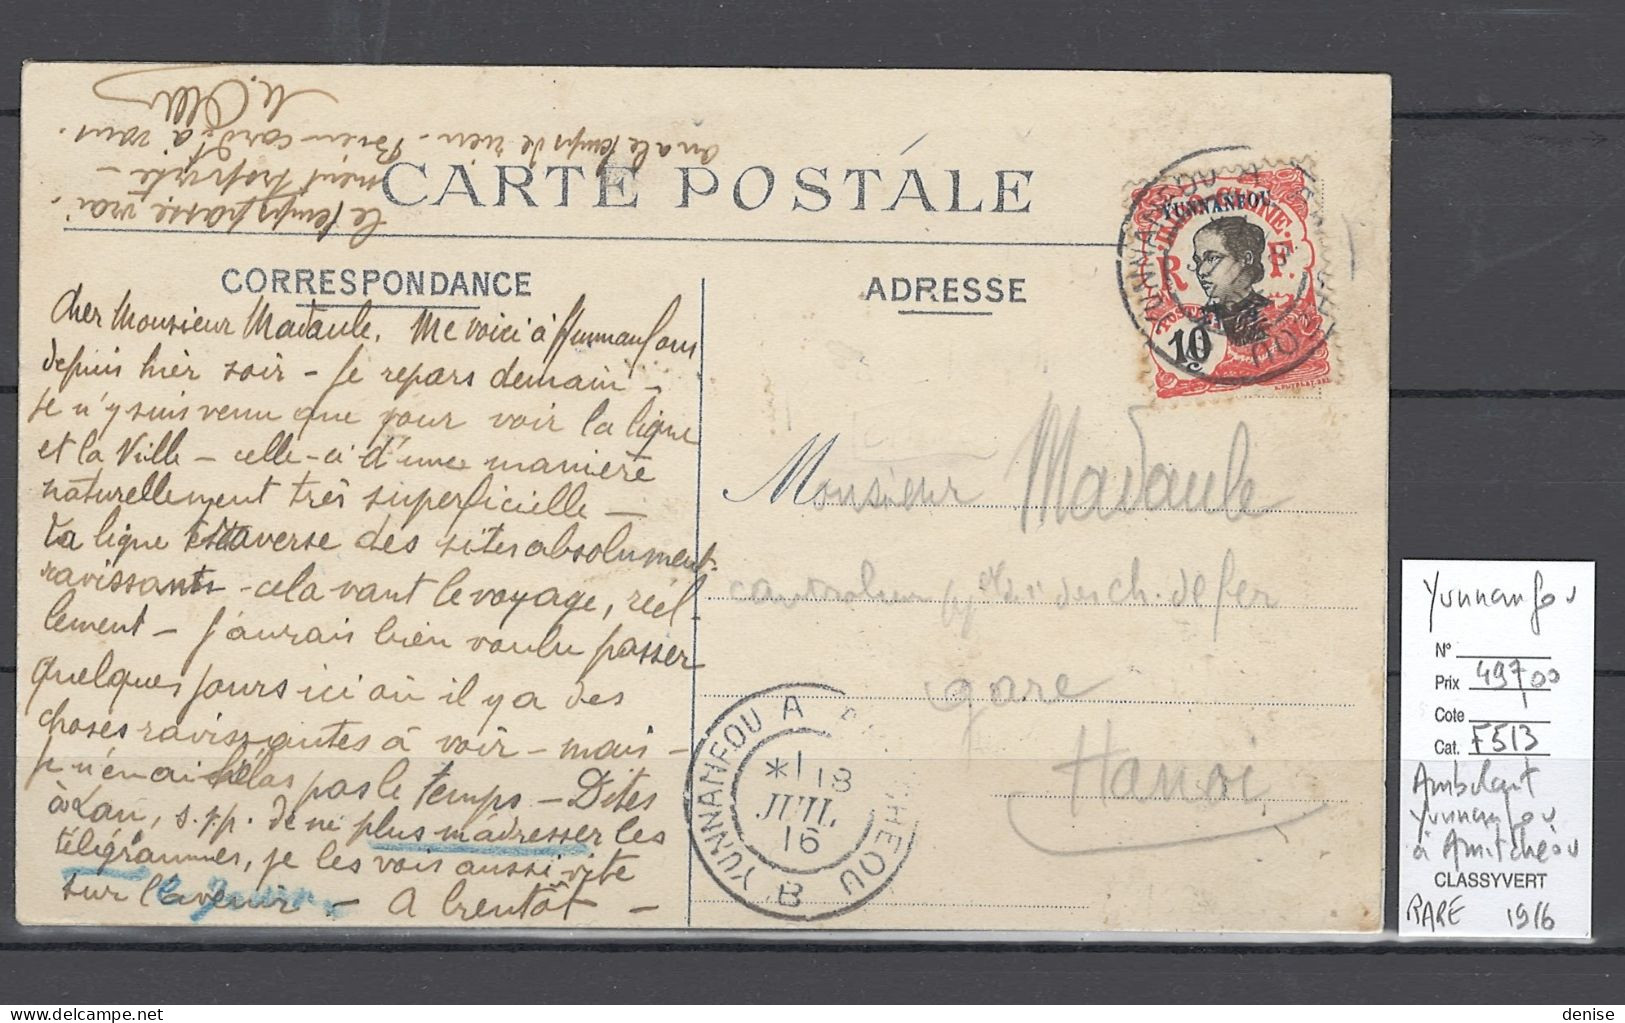 CARTE POSTALE
CORRESPONDANCE
ADRESSE
Cher Monsieur Madaule, Me voici à Yunnanfou
depuis hier soir – Je repars demain –
Je n'y suis venu que pour voir la ligne
et la Ville – celle-ci d'une manière
naturellement très superficielle –
La ligne traverse des sites absolument
ravissants – cela vaut le voyage, réel-
lement – J'aurais bien voulu passer
quelques jours ici où il y a des
choses ravissantes à voir – mais –
je n'en ai hélas pas le temps – Dites
à Lan, s.v.p. de ne plus m'adresser les
télégrammes, je les vois aussi vite
sur l'avenir – A bientôt –
le temps passe vrai-
ment trop vite –
on a le temps de rien – Bien cord. à vous.
YUNNANFOU
INDOCHINE
R F
POSTES
10
Monsieur Madaule
gare
Hanoi
YUNNANFOU A
*1
18
JUIL
16
B
Yunnanfou
N°
Prix 497,00
Cote
Cat. F513
Ambulant
Yunnanfou
à Amitchéou
CLASSYVERT
RARE 1916
denise